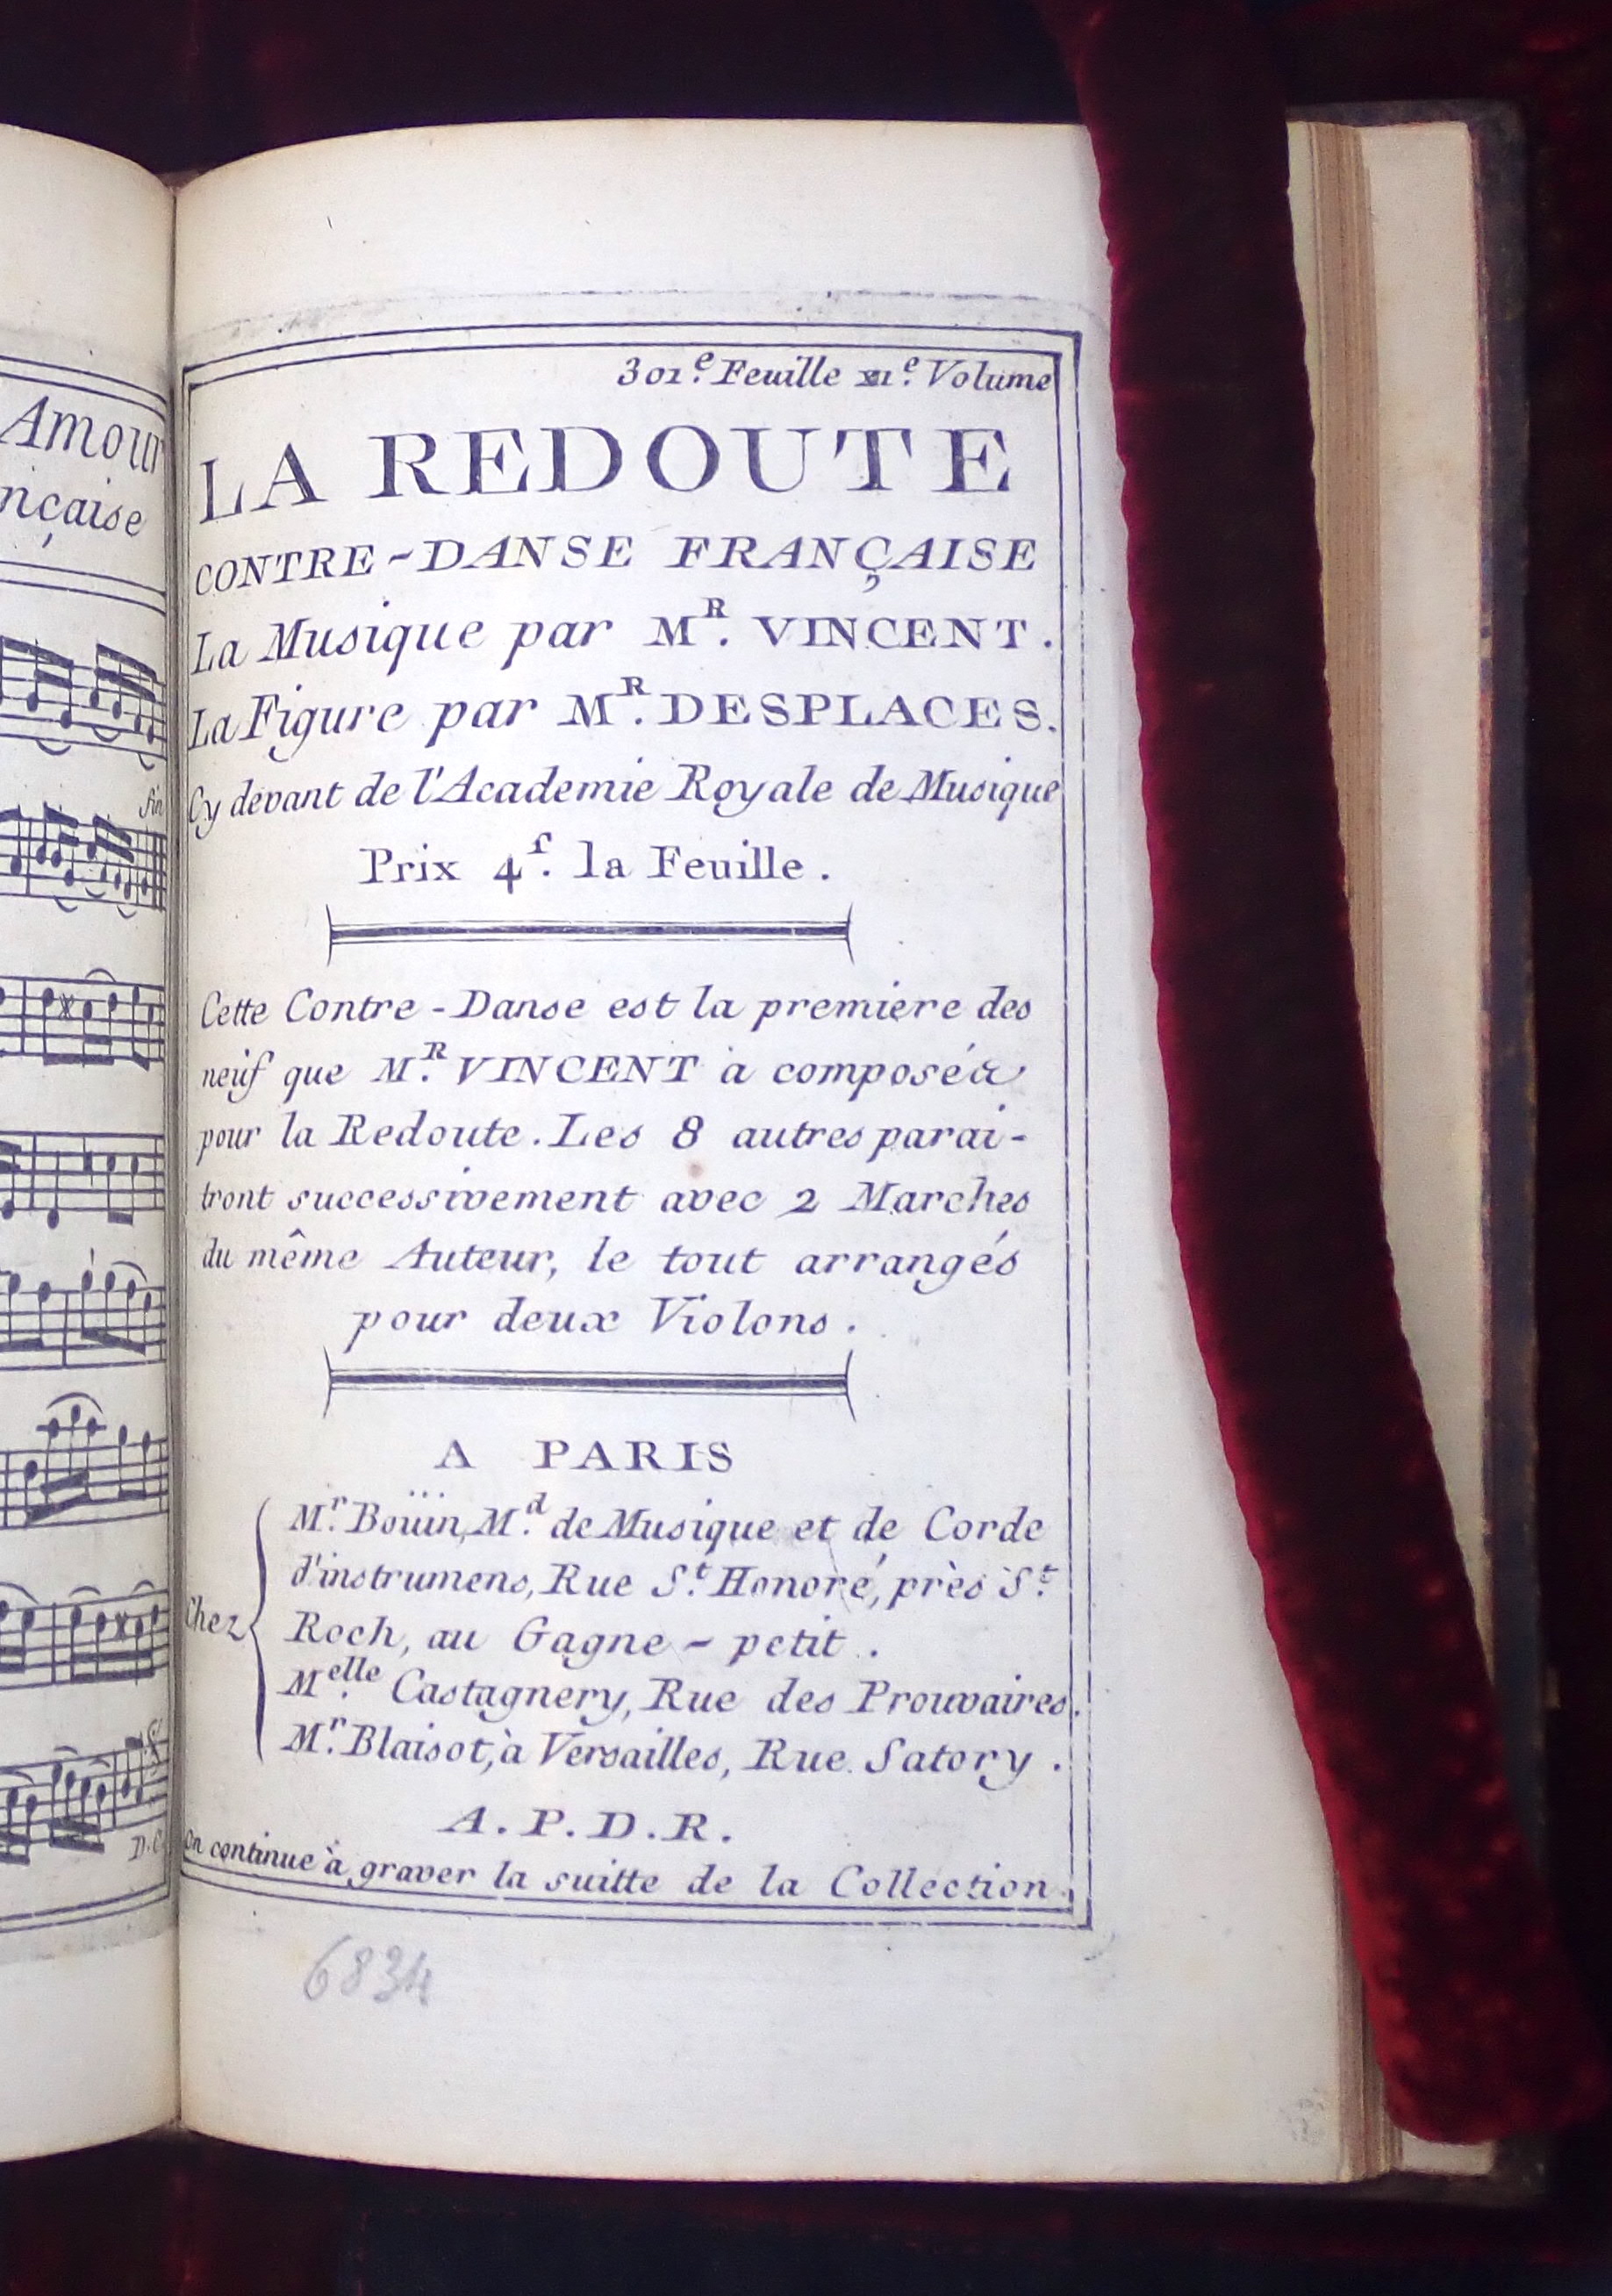 Amour
nçaise
fin
D.C.
301.e Feuille XII.e Volume
LA REDOUTE
CONTRE-DANSE FRANÇAISE
La Musique par M.R VINCENT.
La Figure par M.R DESPLACES.
Cy devant de l'Academie Royale de Musique
Prix 4.s la Feuille.
Cette Contre-Danse est la premiere des
neuf que M.R VINCENT à composéǝ
pour la Redoute. Les 8 autres parai-
tront successivement avec 2 Marches
du même Auteur, le tout arrangés
pour deux Violons.
A PARIS
Chez
M.r Boüin, M.d de Musique et de Corde
d'instrumens, Rue S.t Honoré, près S.t
Roch, au Gagne-petit.
M.elle Castagnery, Rue des Prouvaires.
M.r Blaisot, à Versailles, Rue Satory.
A.P.D.R.
On continue à graver la suitte de la Collection.
6834